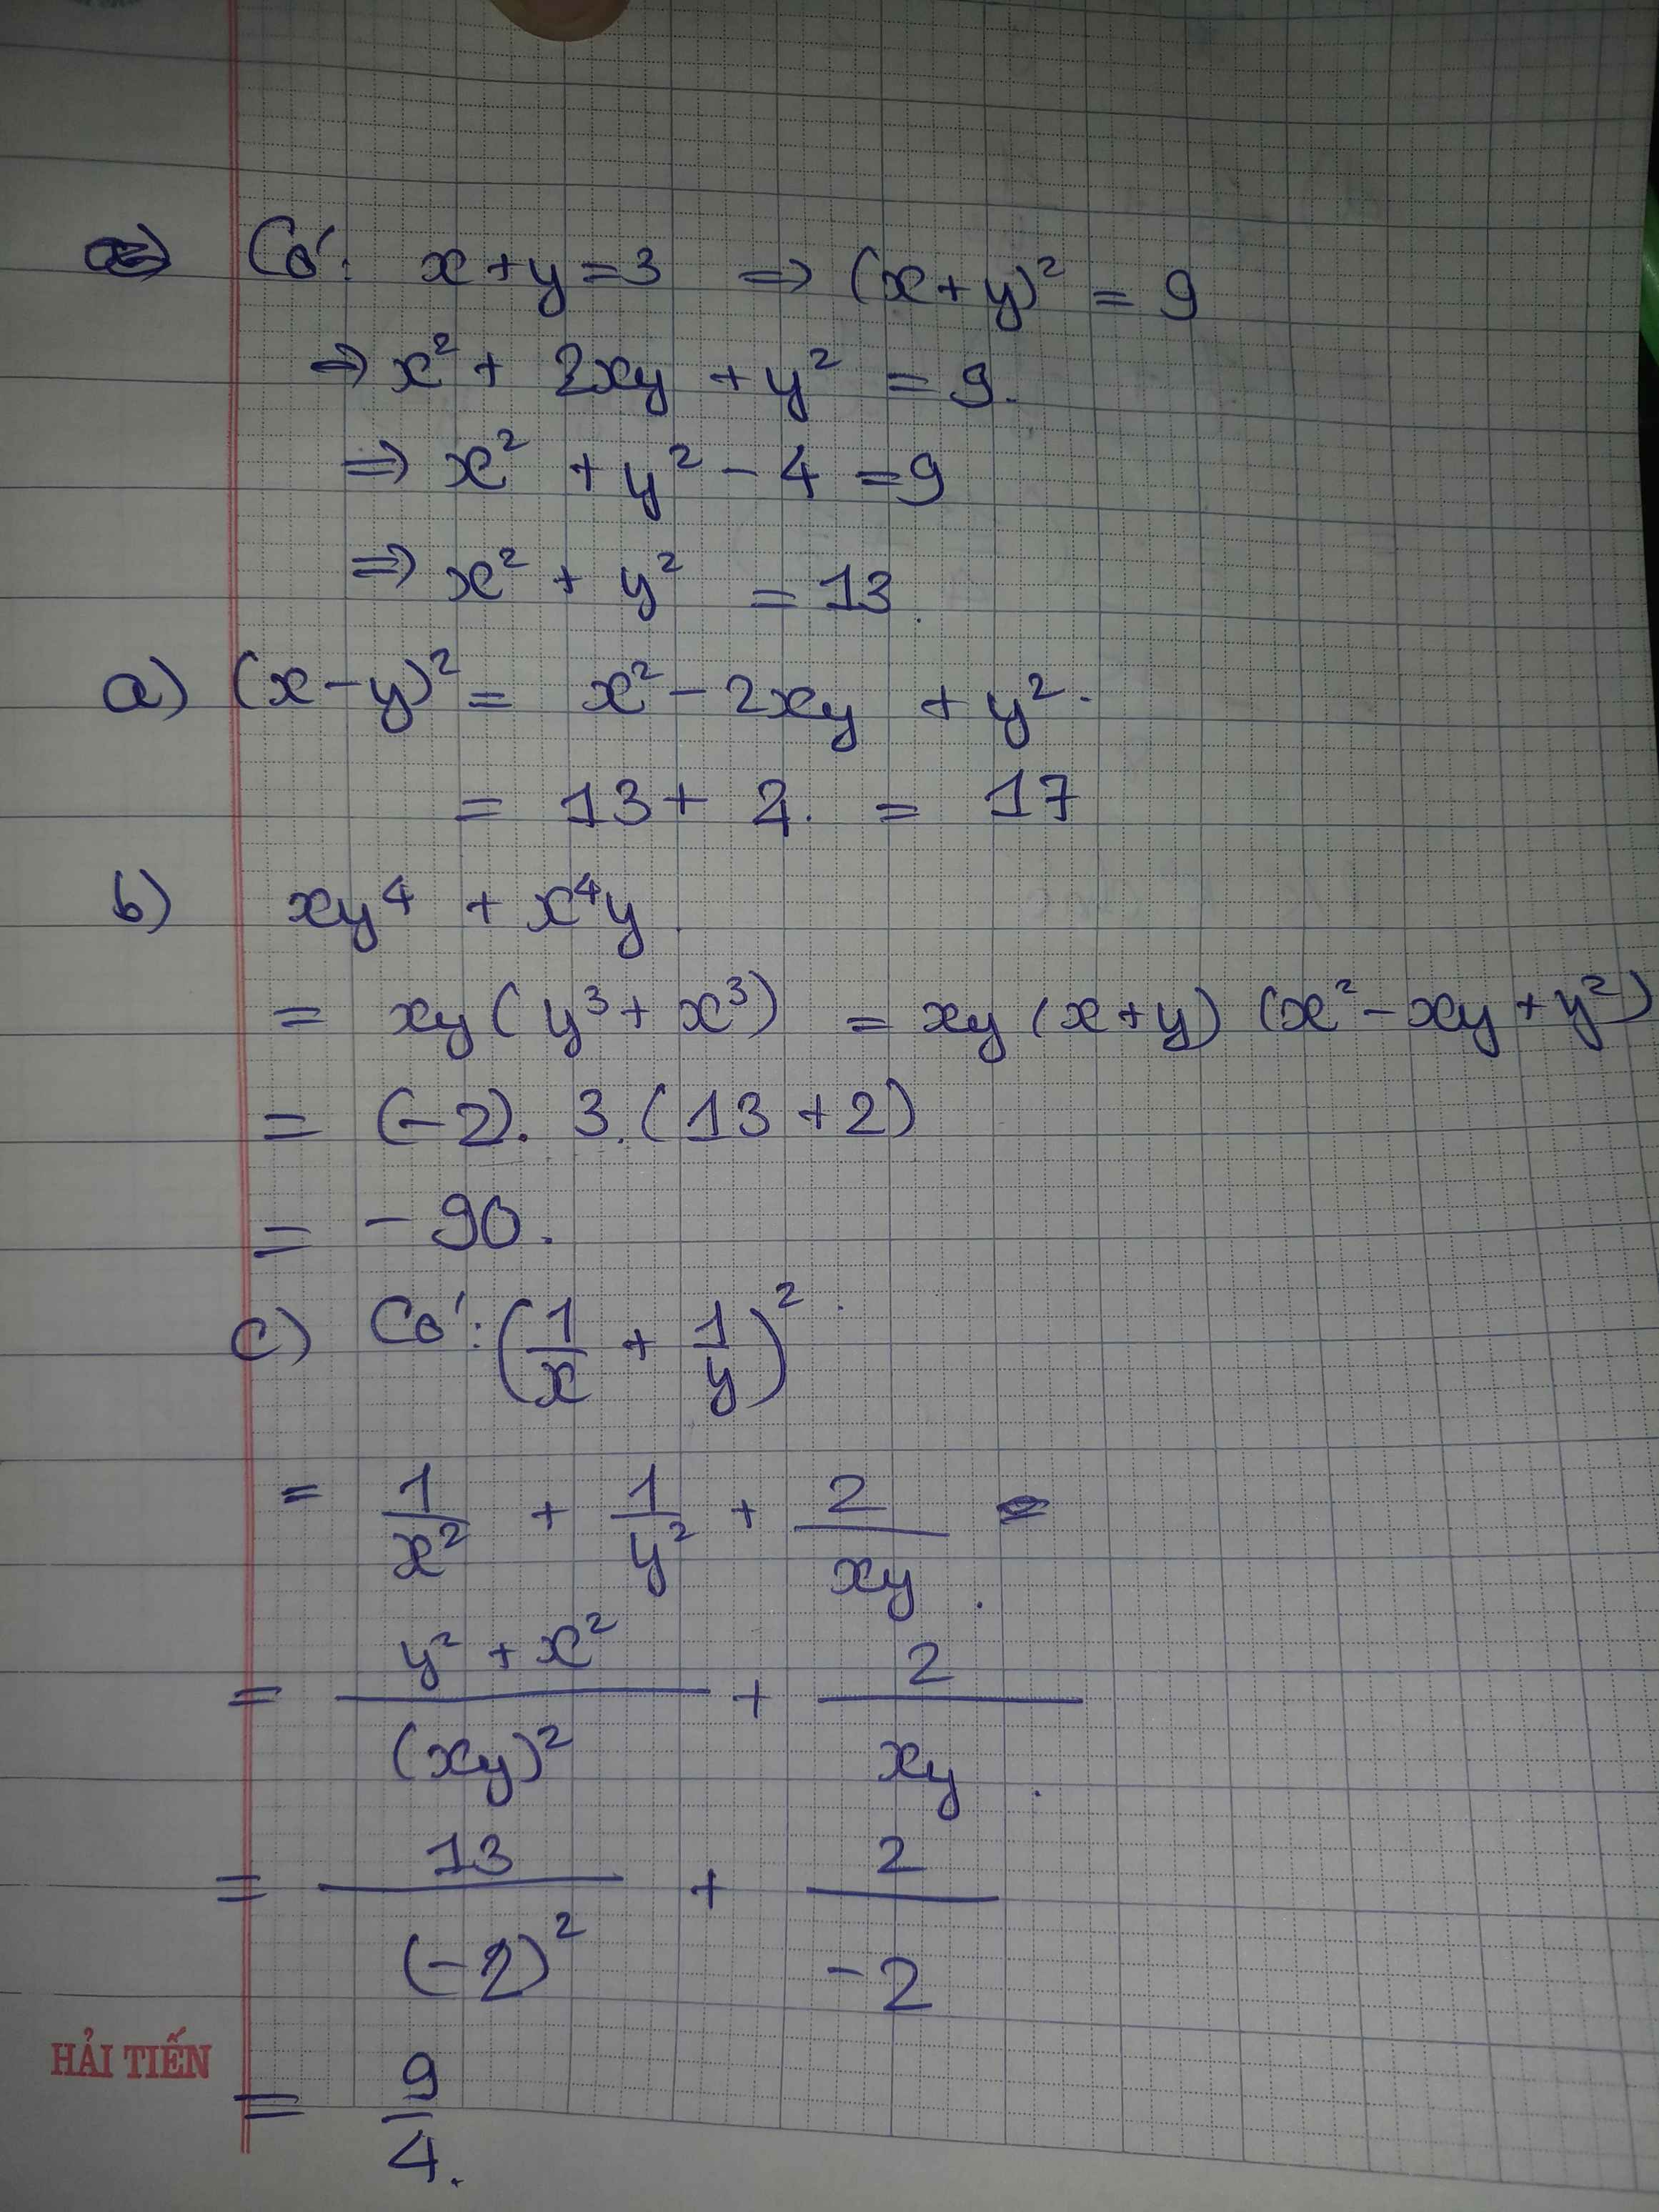 Có: x+y=3 ⇒ (x+y)² = 9
⇒ x² + 2xy + y² = 9.
⇒ x² + y² - 4 = 9
⇒ x² + y² = 13.
a) (x-y)² = x² - 2xy + y².
= 13 + 4. = 17
b) xy⁴ + x⁴y.
= xy(y³ + x³) = xy(x+y)(x² - xy + y²)
= (-2). 3.(13 + 2)
= -90.
c) Có: (1/x + 1/y)²
= 1/x² + 1/y² + 2/xy.
= (y² + x²)/(xy)² + 2/xy.
= 13/(-2)² + 2/-2
HẢI TIẾN
= 9/4.